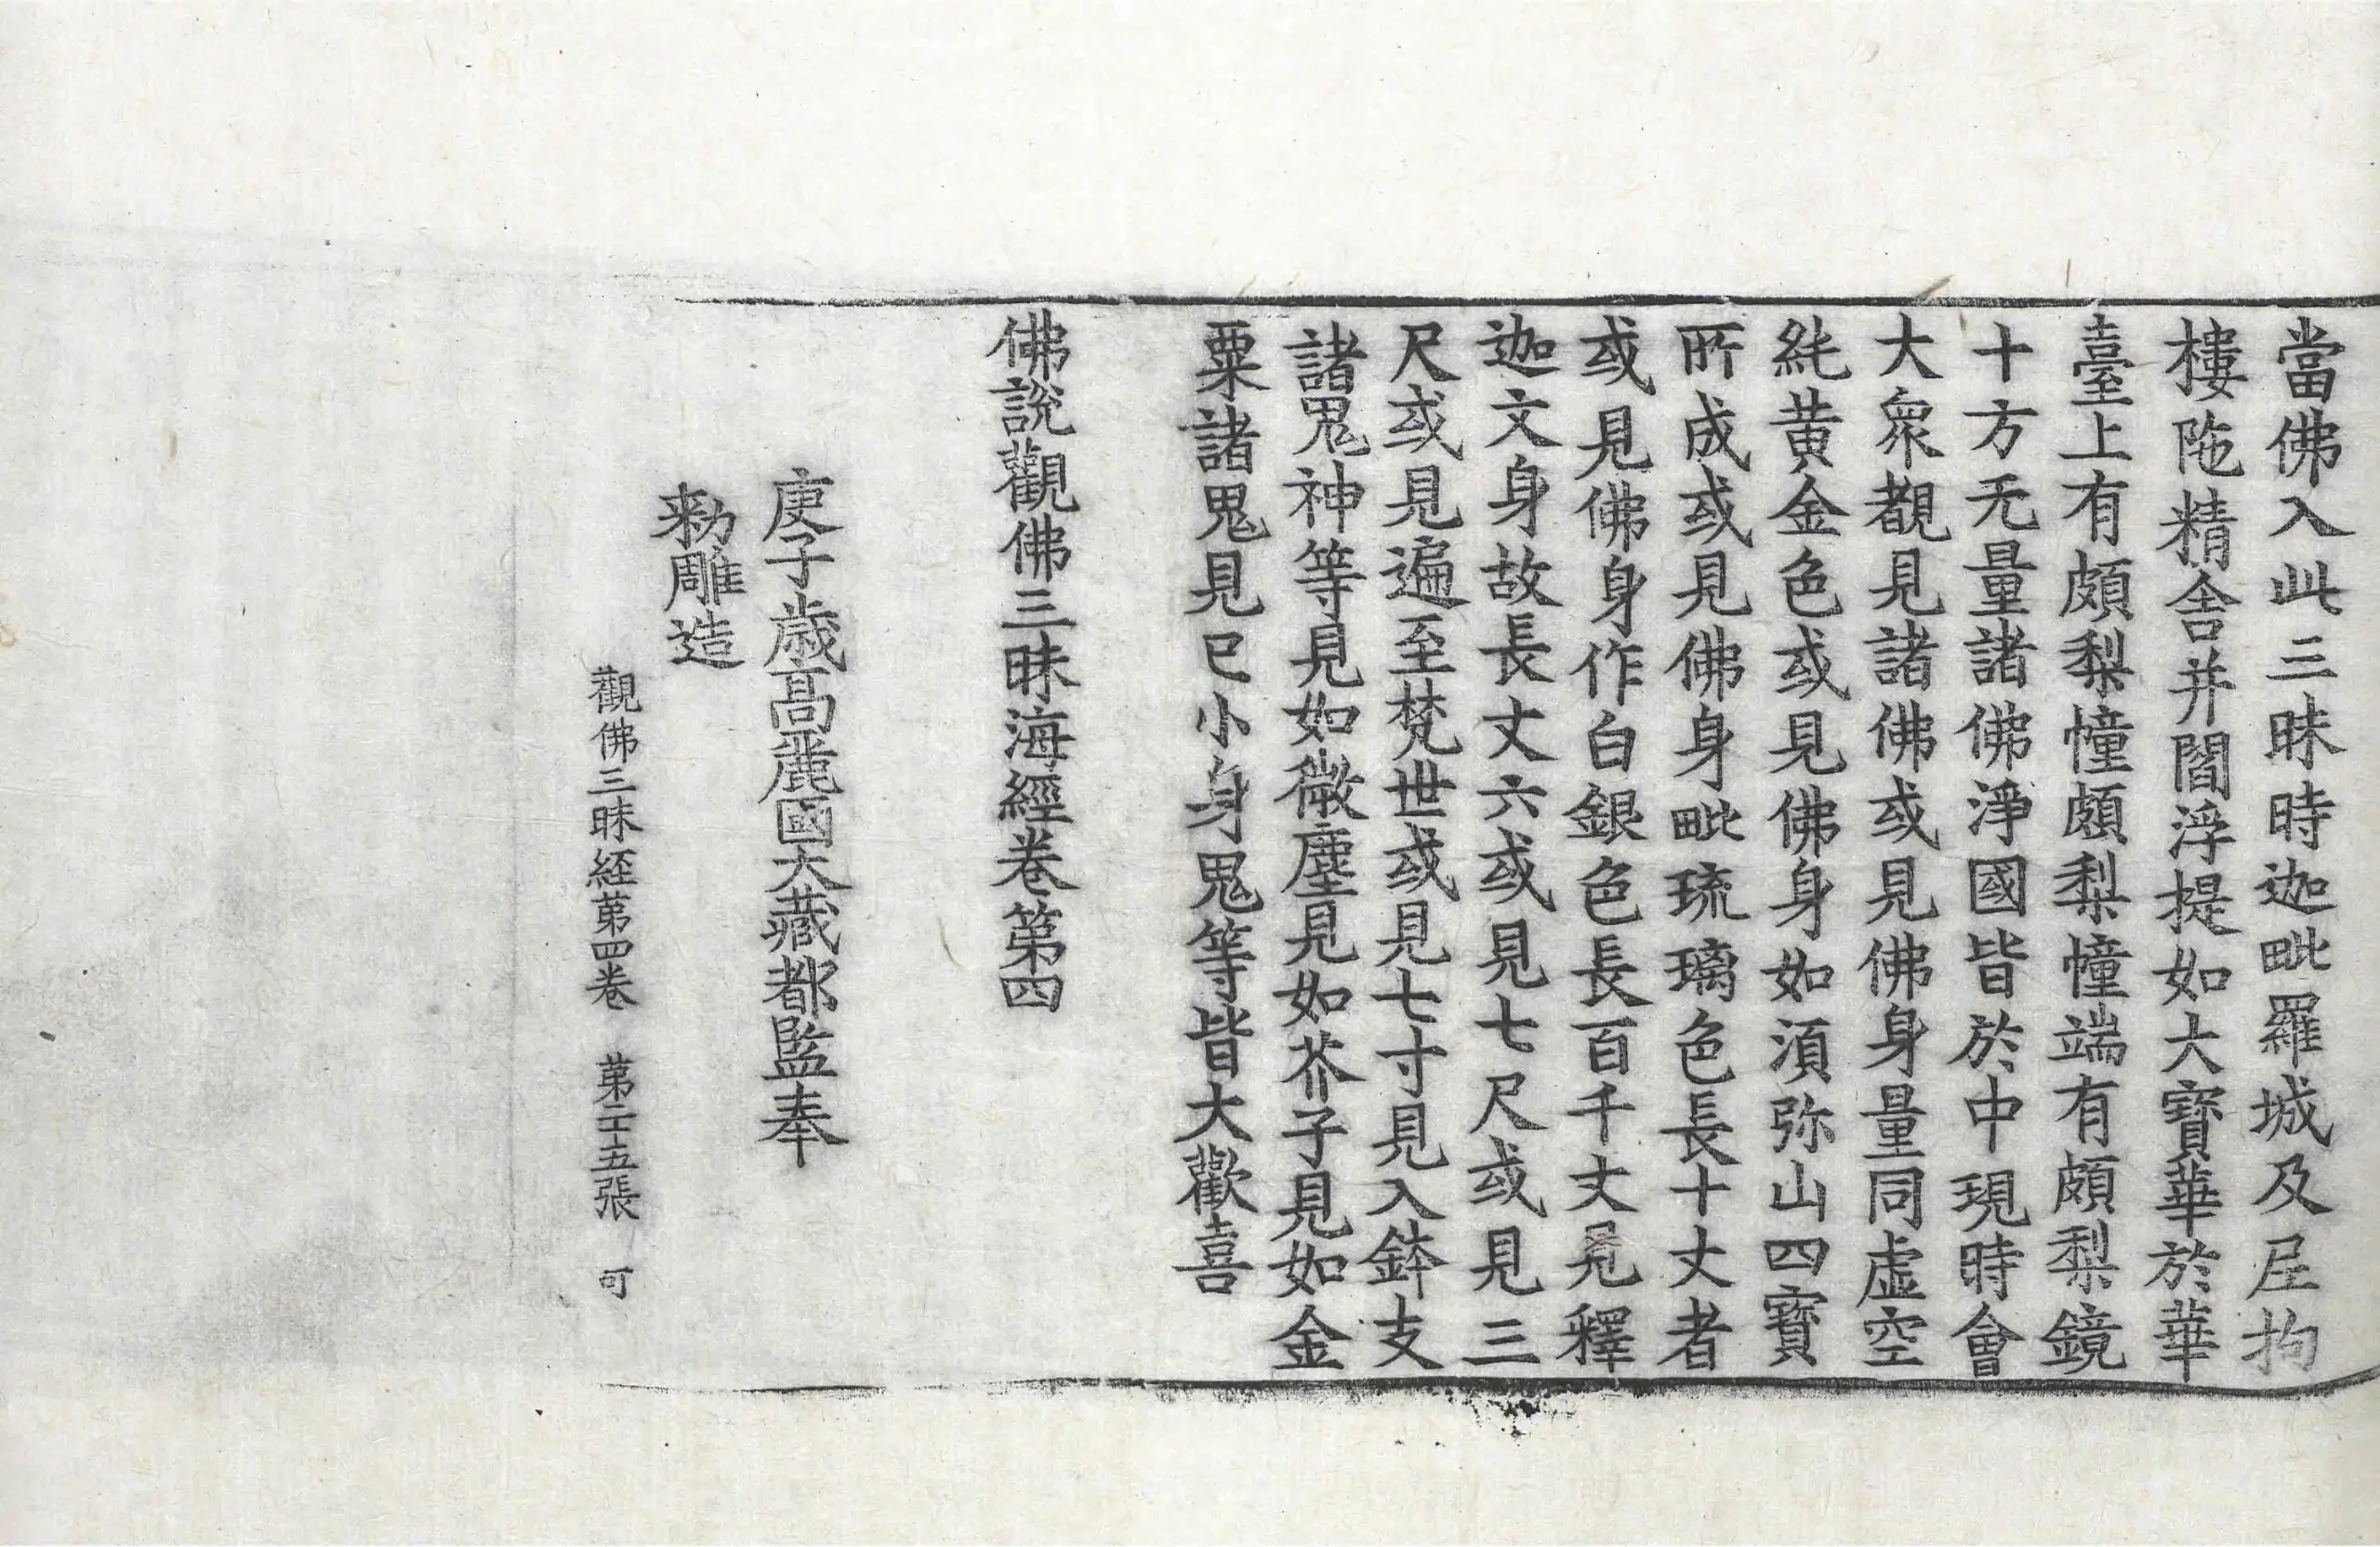 當佛入此三昧時迦毗羅城及𡰱拘
樓陁精舎并閻浮提如大寳華於華
臺上有頗梨幢頗梨幢端有頗梨鏡
十方无量諸佛淨國皆於中現時會
大衆覩見諸佛或見佛身量同虛空
純黄金色或見佛身如湏弥山四寳
所成或見佛身毗琉璃色長十丈者
或見佛身作白銀色長百千丈見釋
迦文身故長丈六或見七尺或見三
尺或見遍至梵世或見七寸見入鉢支
諸鬼神等見如微塵見如芥子見如金
粟諸鬼見已小身鬼等皆大歡喜
佛說觀佛三昧海經卷第四
庚子歲高麗國大藏都監奉
勑雕造
觀佛三昧経第四卷　第二十五張　可